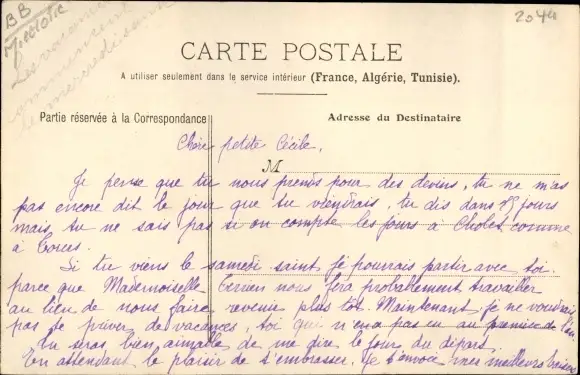 BB
2044
Les vacances
commencent
le mercredi saint
CARTE POSTALE
A utiliser seulement dans le service intérieur (France, Algérie, Tunisie).
Partie réservée à la Correspondance
Adresse du Destinataire
M
Chère petite Cécile,
Je pense que tu nous prends pour des devins, tu ne m'as
pas encore dit le jour que tu viendrais, tu dis dans 15 jours
mais tu ne sais pas si on compte les jours à Cholet comme
à
Si tu viens le samedi saint je pourrais partir avec toi
parce que Mademoiselle nous fera probablement travailler
au lieu de nous faire revenir plus tôt. Maintenant je ne voudrais
pas te priver de vacances, toi qui n'en a pas eu au premier de l'an
Tu seras bien aimable de me dire le jour du départ.
En attendant le plaisir de t'embrasser, je t'envoie mes meilleurs baisers